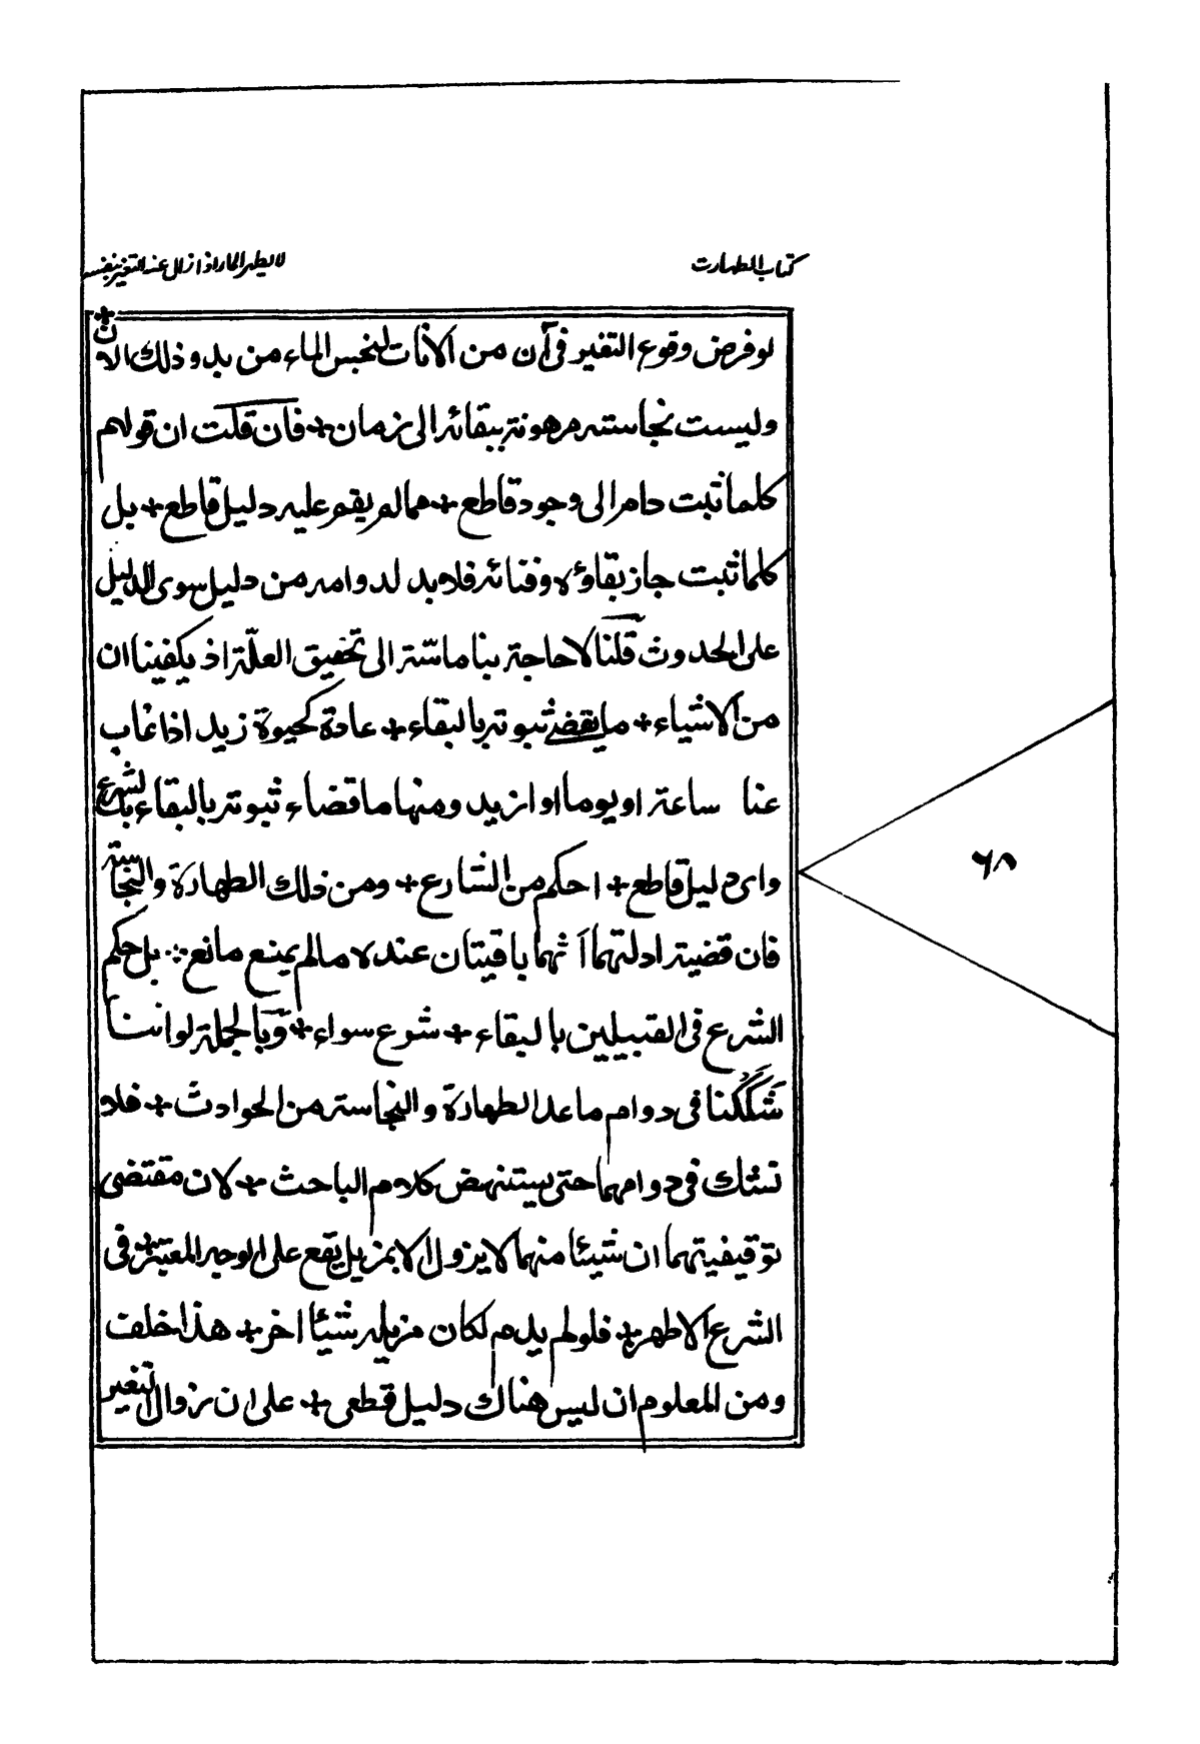 كتاب الطهارت
لا يطهر الماء اذا زال عنه التغير بنفسه
لو فرض وقوع التغير فى آن من الآنات لنجس الماء من بد وذلك الان
وليست نجاسته مرهونة ببقائه الى زمان + فان قلت ان قولهم
كلما ثبت دام الى وجود قاطع + مما لم يقم عليه دليل قاطع + بل
كلما ثبت جاز بقاؤه وفنائه فلا بد لدوامه من دليل سوى الدليل
على الحدوث قلنا لا حاجة بنا ماسّة الى تحقيق العلّة اذ يكفينا ان
من الاشياء + ما يقضى ثبوته بالبقاء + عادة كحيوة زيد اذا غاب
عنا ساعة او يوما او ازيد ومنها ما قضاء ثبوته بالبقاء بالشرع
واى دليل قاطع + احكم من الشارع + ومن ذلك الطهارة والنجاسة
فان قضية ادلتهما أنهما باقيتان عنده مالم يمنع مانع ؞ بل حكم
الشرع فى القبيلين بالبقاء + شرع سواء + وبالجملة لو اننا
شَكَّكنا فى دوام ما عدا الطهارة والنجاسة من الحوادث + فلا
نشك فى دوامهما حتى يستنهض كلام الباحث + لان مقتضى
توقيفيتهما ان شيئا منهما لا يزول الا بمزيل يقع على الوجه المعتبر فى
الشرع الاطهر + فلو لم يدم لكان مزيله شيئا اخر + هذا خلف
ومن المعلوم ان ليس هناك دليل قطعى + على ان زوال التغير
٦٨